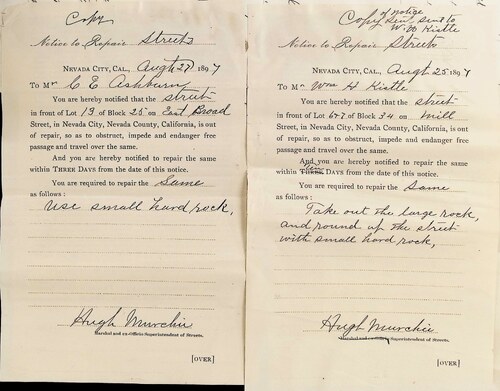 Copy
Notice to Repair Streets
NEVADA CITY, CAL., Augt 27 1897
To Mr C E Ashburn
You are hereby notified that the street
in front of Lot 13 of Block 25 on East Broad
Street, in Nevada City, Nevada County, California, is out
of repair, so as to obstruct, impede and endanger free
passage and travel over the same.
And you are hereby notified to repair the same
within THREE DAYS from the date of this notice.
You are required to repair the Same
as follows:
Use small hard rock,
Hugh Murchie
Marshal and ex-Officio Superintendent of Streets.
[OVER]
of notice
Copy sent to
W. H Kistle
Notice to Repair Streets
NEVADA CITY, CAL., Augt 25 1897
To Mr Wm H Kistle
You are hereby notified that the street
in front of Lot 6+7 of Block 34 on Mill
Street, in Nevada City, Nevada County, California, is out
of repair, so as to obstruct, impede and endanger free
passage and travel over the same.
And you are hereby notified to repair the same
ten
within THREE DAYS from the date of this notice.
You are required to repair the Same
as follows:
Take out the large rock,
and round up the street
with small hard rock,
Hugh Murchie
Marshal and ex-Officio Superintendent of Streets.
[OVER]